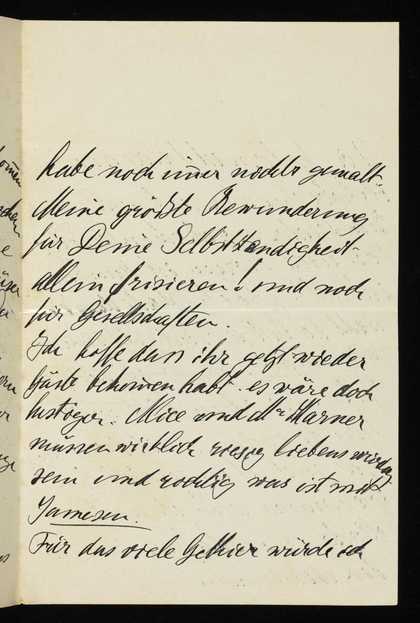 habe noch immer nichts gemalt.
Meine größte Bewunderung
für Deine Selbständigkeit
allein frisieren! und noch
für Gesellschaften.
Ich hoffe dass ihr jetzt wieder
Gäste bekommen habt. es wäre doch
lustiger. Alice und Mr Warner
müssen wirklich riesig liebenswürdig
sein und was ist mit
Jamesen.
Für das viele würde ich